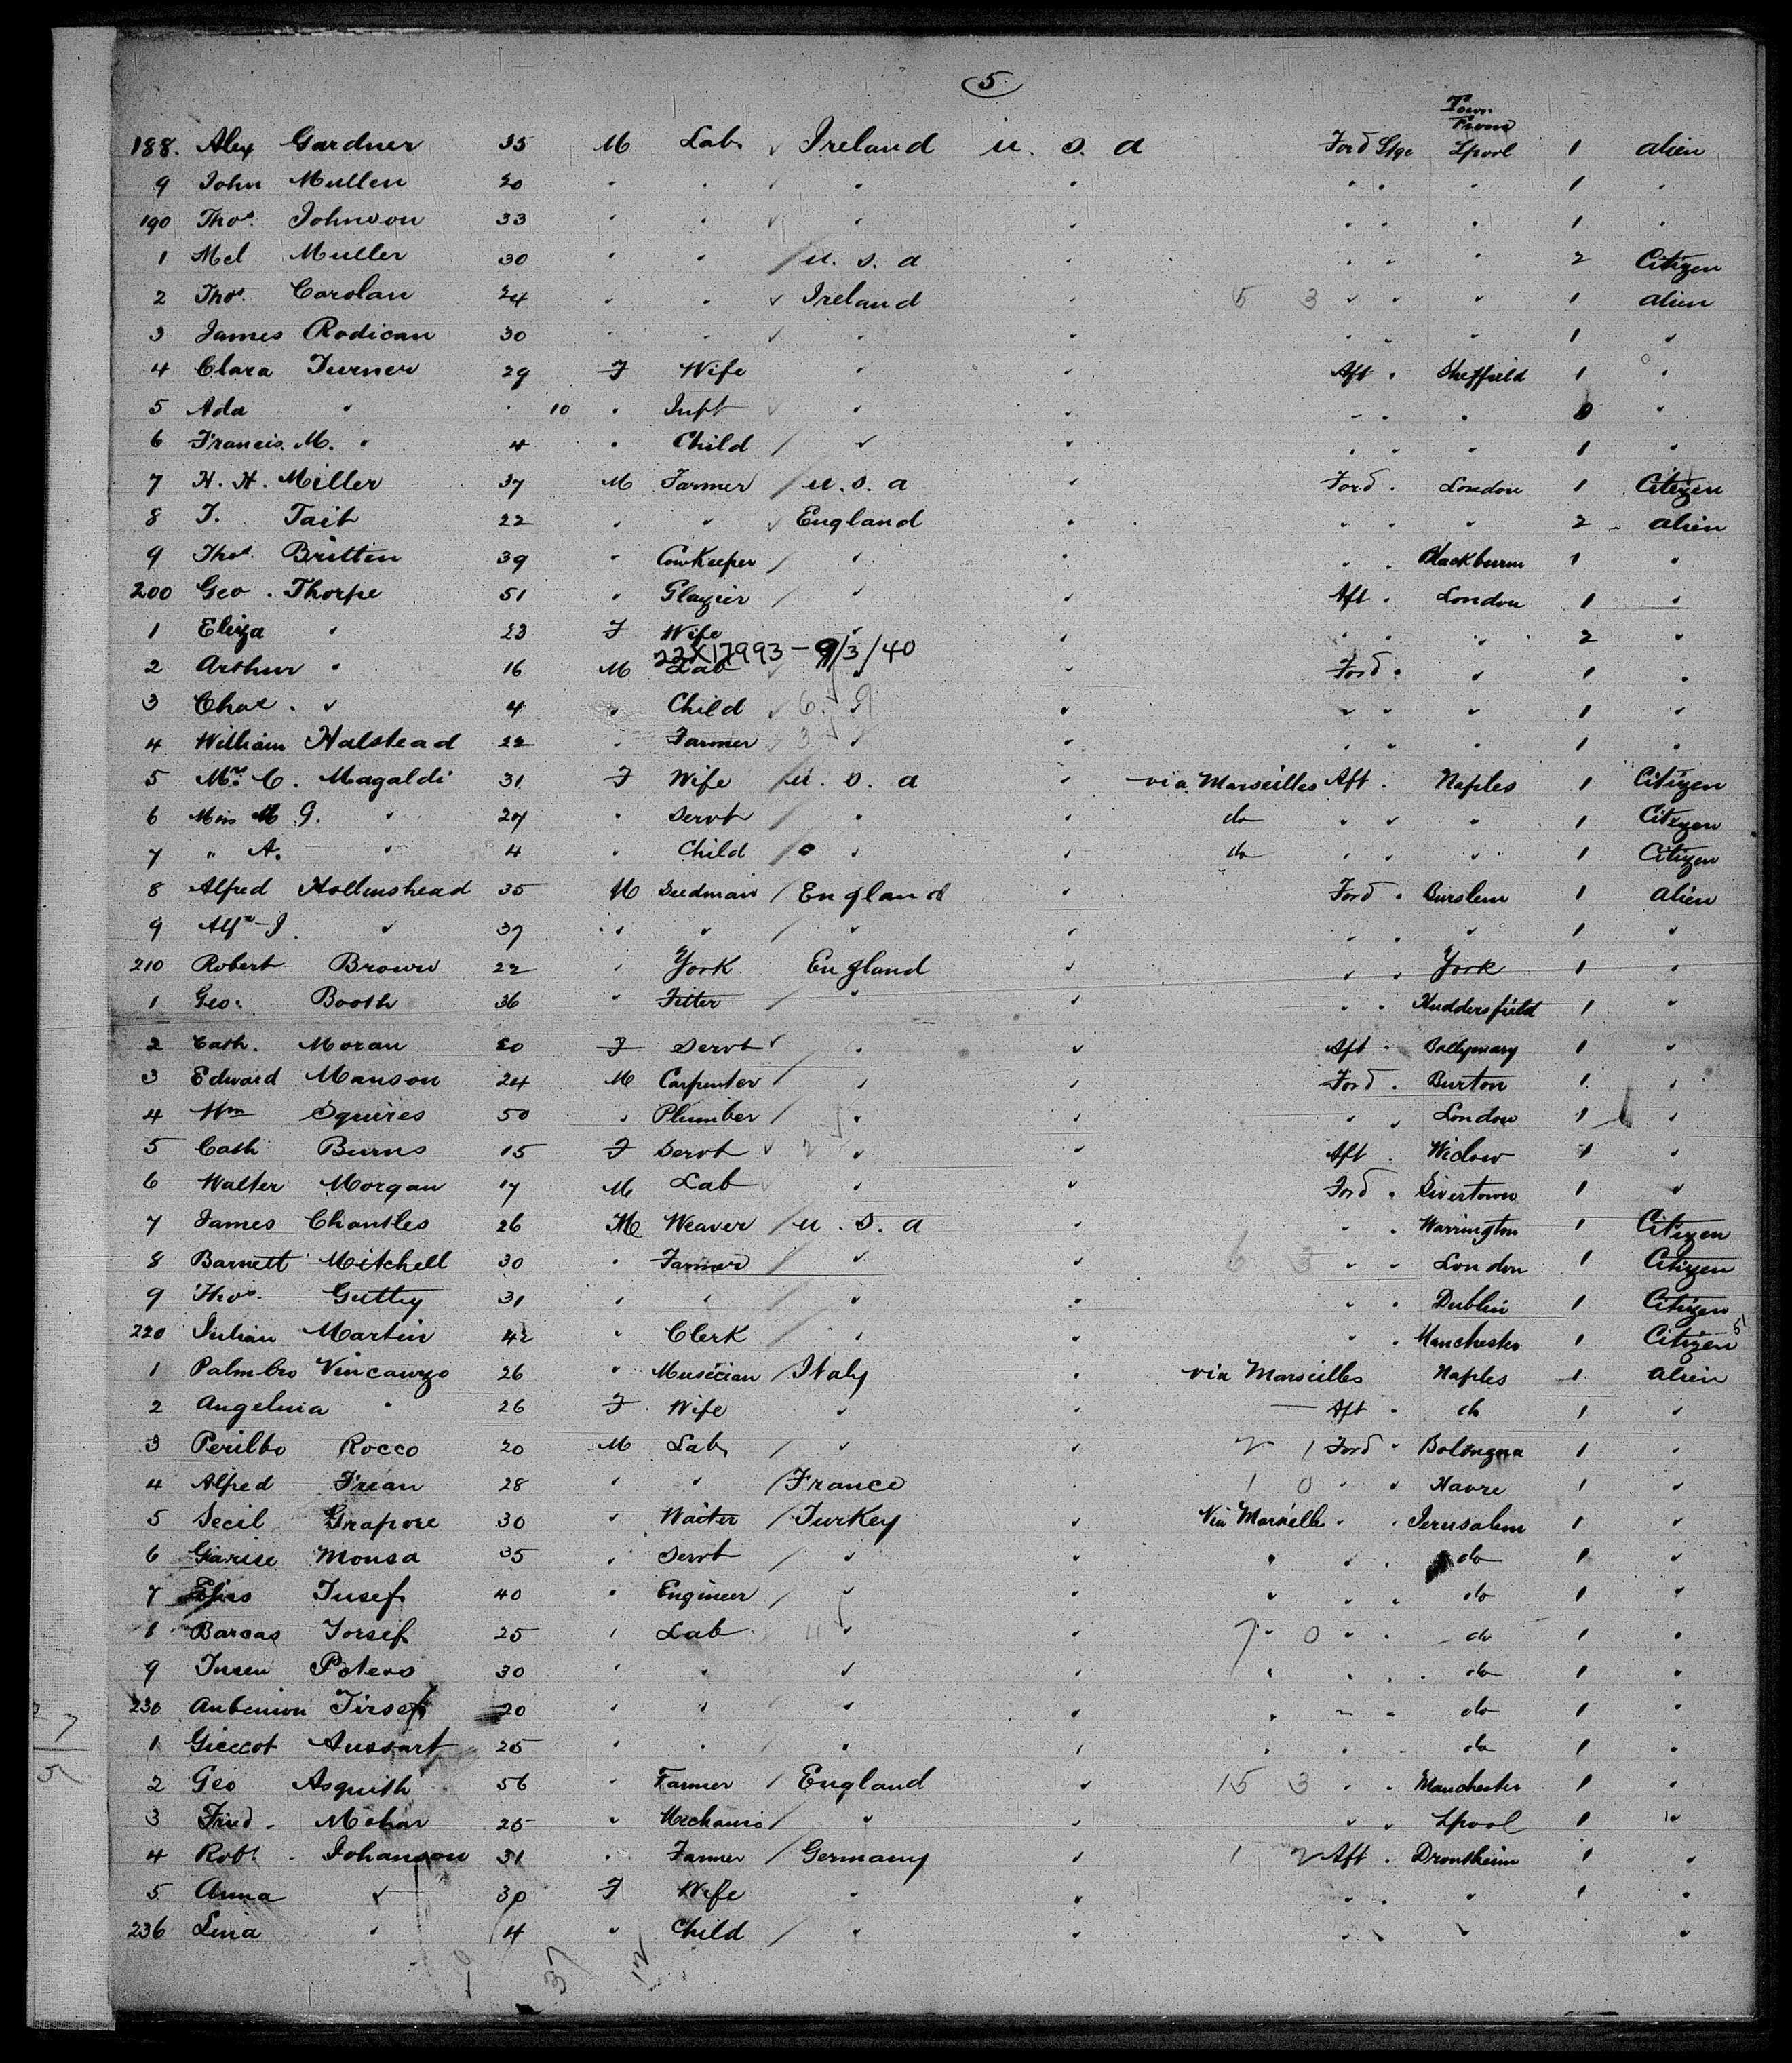 5
Town
From
188. Alex Gardner 35 M Lab ✓ Ireland U. S. A Ford Stge Lpool 1 alien
9 John Mullen 20 " " ✓ " " " " " 1 "
190 Thos. Johnson 33 " " ✓ " " " " " 1 "
1 Mel Muller 30 " " / U. S. A " " " " 2 Citizen
2 Thos. Carolan 24 " " ✓ Ireland " 5 3 " " " 1 alien
3 James Rodican 30 " " ✓ " " " " " 1 "
4 Clara Turner 29 F Wife " " Aft " Sheffield 1 "
5 Ada " 10 " Inft ✓ " " " " " "
6 Francis. M. " 4 " Child / " " " " " 1 "
7 H. H. Miller 37 M Farmer / U. S. A " Ford " London 1 Citizen
8 T. Tait 22 " " ✓ England " " " " 2 alien
9 Thos. Britten 39 " Cowkeeper / " " " " Blackburn 1 "
200 Geo. Thorpe 51 " Glazier / " " Aft " London 1 "
1 Eliza " 23 F Wife " " " " " 2 "
22X17993 - 9/3/40
2 Arthur " 16 M Lab " Ford " " 1 "
3 Chas. " 4 " Child ✓ 6 9 " " " " " 1 "
4 William Halstead 22 " Farmer ✓ 3 " " " " " 1 "
5 Mrs. C. Magaldi 31 F Wife / U. S. A " via Marseilles Aft " Naples 1 Citizen
6 Miss M G. " 27 " Servt / " " do " " " 1 Citizen
7 " A. " 4 " Child / " " do " " " 1 Citizen
8 Alfred Hollinshead 35 M Seedman / England " Ford " Burslem 1 alien
9 " 37 " " / " " " " " 1 "
210 Robert Brown 22 " York England " " " York 1 "
1 Geo. Booth 36 " Fitter / " " " " Huddersfield 1 "
2 Cath. Moran 20 F Servt ✓ " " Aft " Ballymary 1 "
3 Edward Manson 24 M Carpenter / " " Ford " Burton 1 "
4 Wm Squires 50 " Plumber / " " " " London 1 "
5 Cath Burns 15 F Servt ✓ 2 " " Aft " Widow 1 "
6 Walter Morgan 17 M Lab ✓ " " Ford " 1 "
7 James Chantles 26 M Weaver / U. S. A " " " Warrington 1 Citizen
8 Barnett Mitchell 30 " Farmer / " " 6 3 " " London 1 Citizen
9 Thos. 31 " " / " " " " Dublin 1 Citizen
220 Julian Martin 42 " Clerk / " " " " Manchester 1 Citizen 51
1 Palmbro Vincanzo 26 " Musician / Italy " via Marseilles Naples 1 alien
2 Angelina " 26 F Wife " " Aft " do 1 "
3 Perilbo Rocco 20 M Lab / " 2 1 Ford " Bolongna 1 "
4 Alfred Frean 28 " " / France 1 0 " " Havre 1 "
5 Secil Grapore 30 " Waiter / Turkey " Via Marseille " " Jerusalem 1 "
6 Garise Monsa 35 " Servt / " " " " " do 1 "
7 Jusef 40 " Engineer / " " " " " do 1 "
8 Barcas Jorsef 25 " Lab " " 7 0 " " do 1 "
9 Jusen Peters 30 " " " " " " " do 1 "
230 Jirsef 20 " " " " " " " do 1 "
1 Gieccot Aussart 25 " " " " " " " do 1 "
2 Geo Asquith 56 " Farmer / England " 15 3 " " Manchester 1 "
3 Fried. Mohar 25 " Mechanic / " " " " Lpool 1 "
4 Robt. Johanson 31 " Farmer / Germany " 1 2 Aft " Drontheim 1 "
5 Anna " 30 F Wife " " " " " 1 "
236 Lina " 4 " Child / " " " " " "
10 37 12